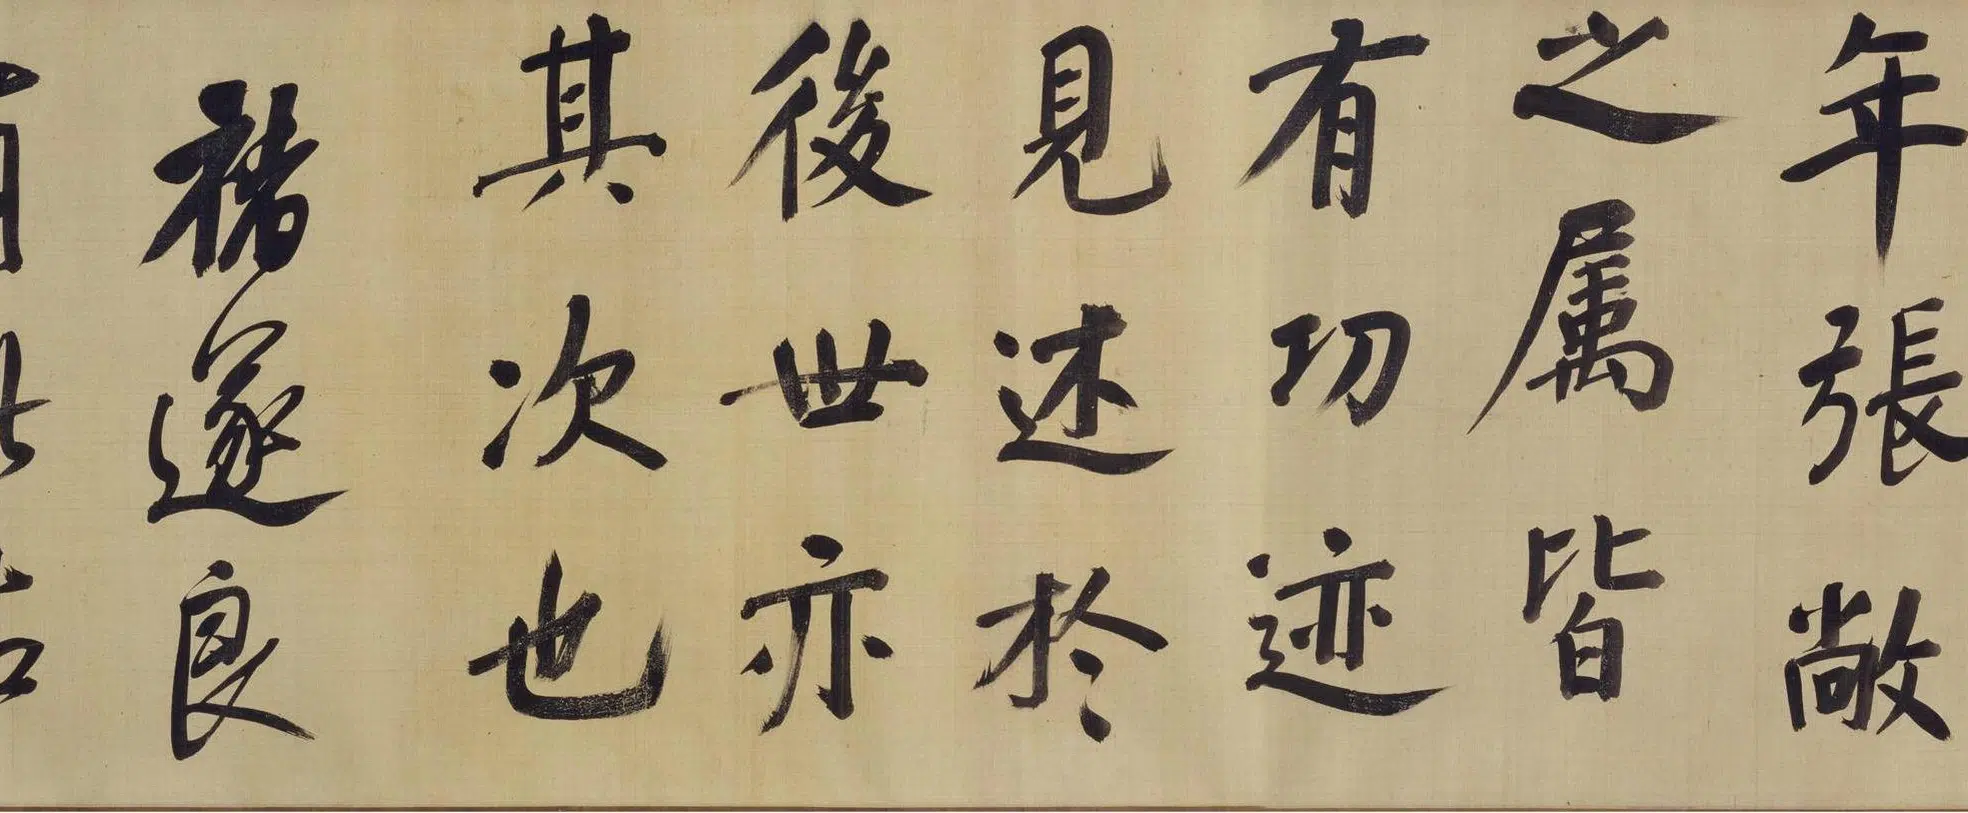 年張敞
之属皆
有功迹
見述於
後世亦
其次也
褚遂良